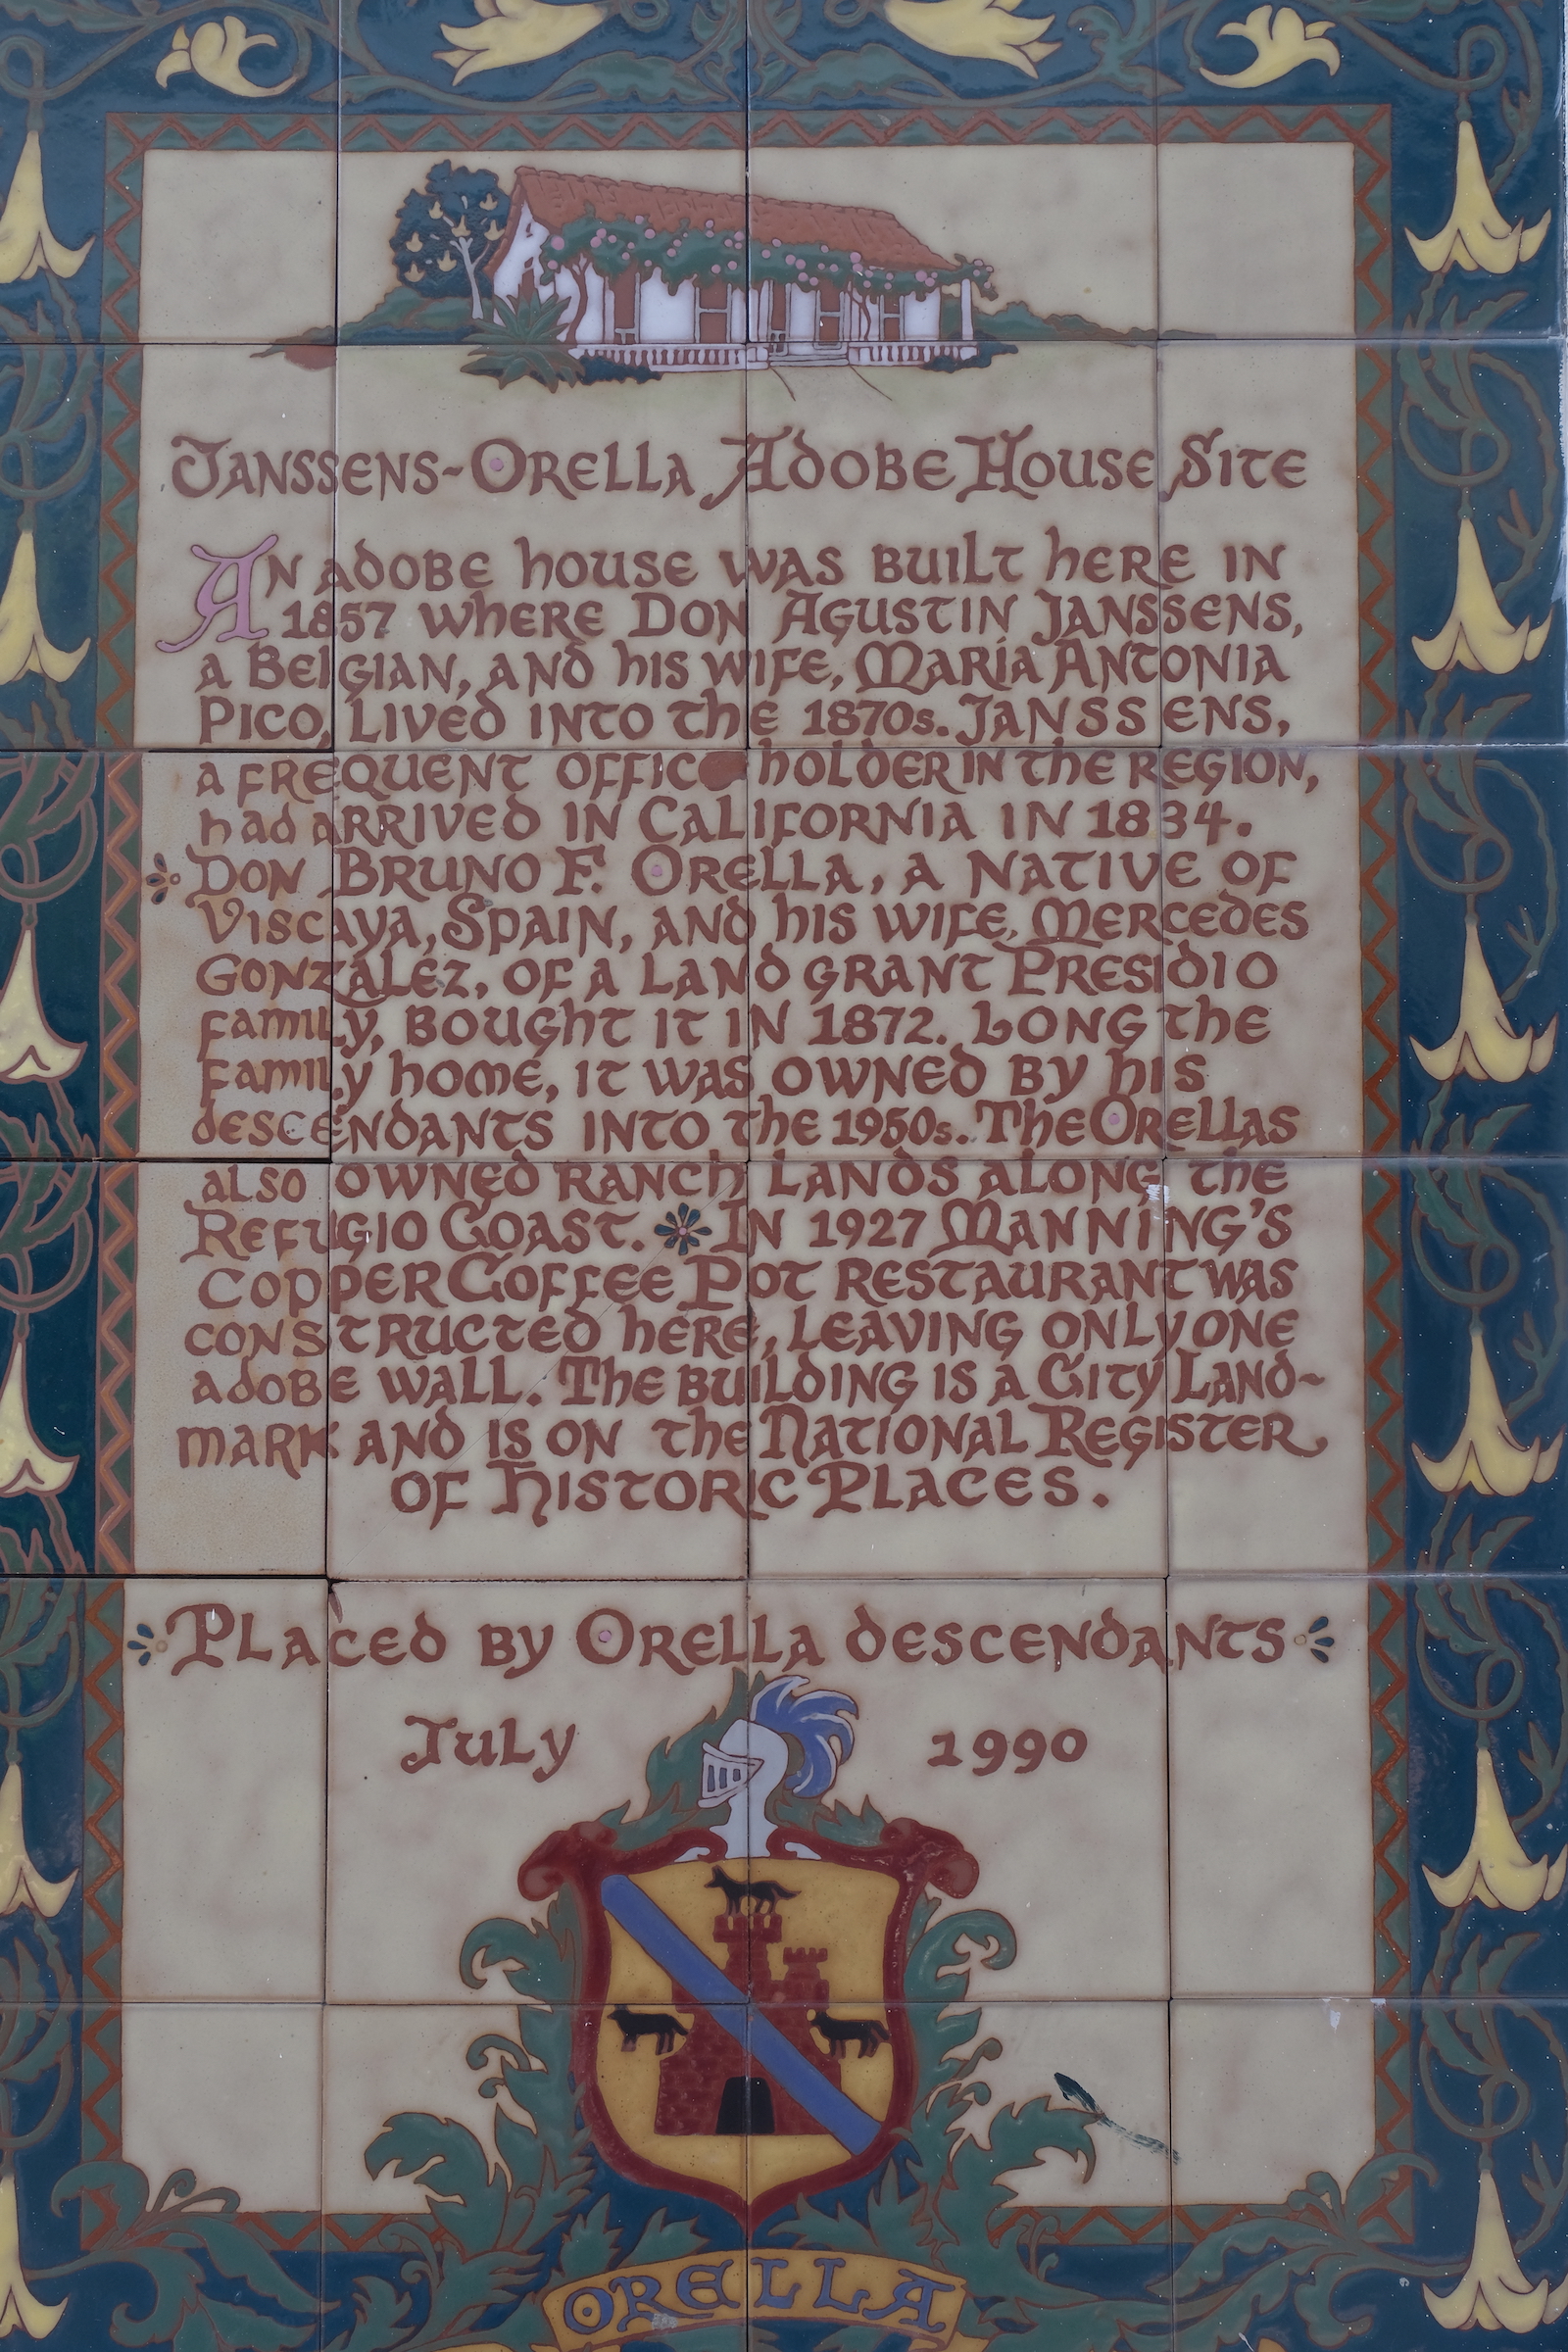 Janssens-Orella Adobe House Site
An adobe house was built here in
1857 where Don Agustin Janssens,
a Belgian, and his wife, María Antonia
Pico, lived into the 1870s. Janssens,
a frequent office holder in the region,
had arrived in California in 1834.
Don Bruno F. Orella, a native of
Viscaya, Spain, and his wife, Mercedes
González, of a land grant Presidio
family, bought it in 1872. Long the
family home, it was owned by his
descendants into the 1950s. The Orellas
also owned ranch lands along the
Refugio Coast. In 1927 Manning's
Copper Coffee Pot Restaurant was
constructed here, leaving only one
adobe wall. The building is a City Land-
mark and is on the National Register
of Historic Places.
Placed by Orella descendants
July 1990
ORELLA